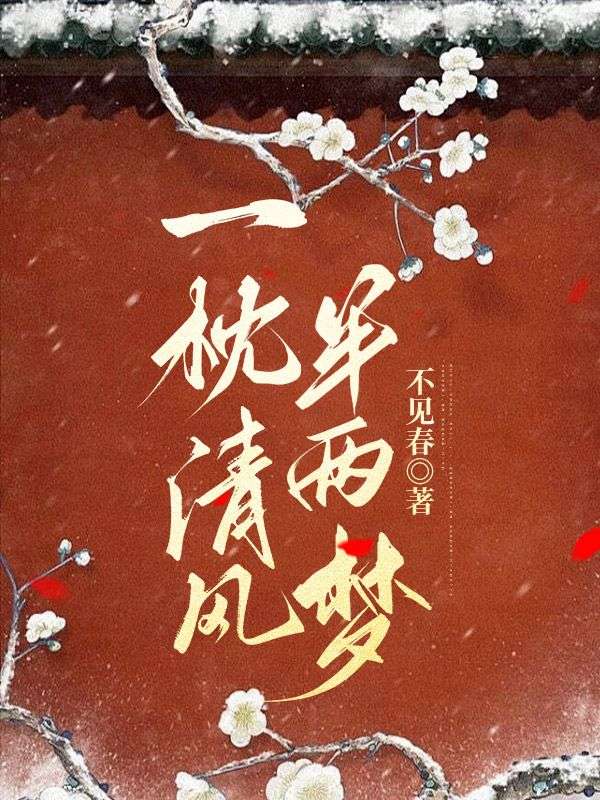 一枕清风
半两梦
不见春◎著